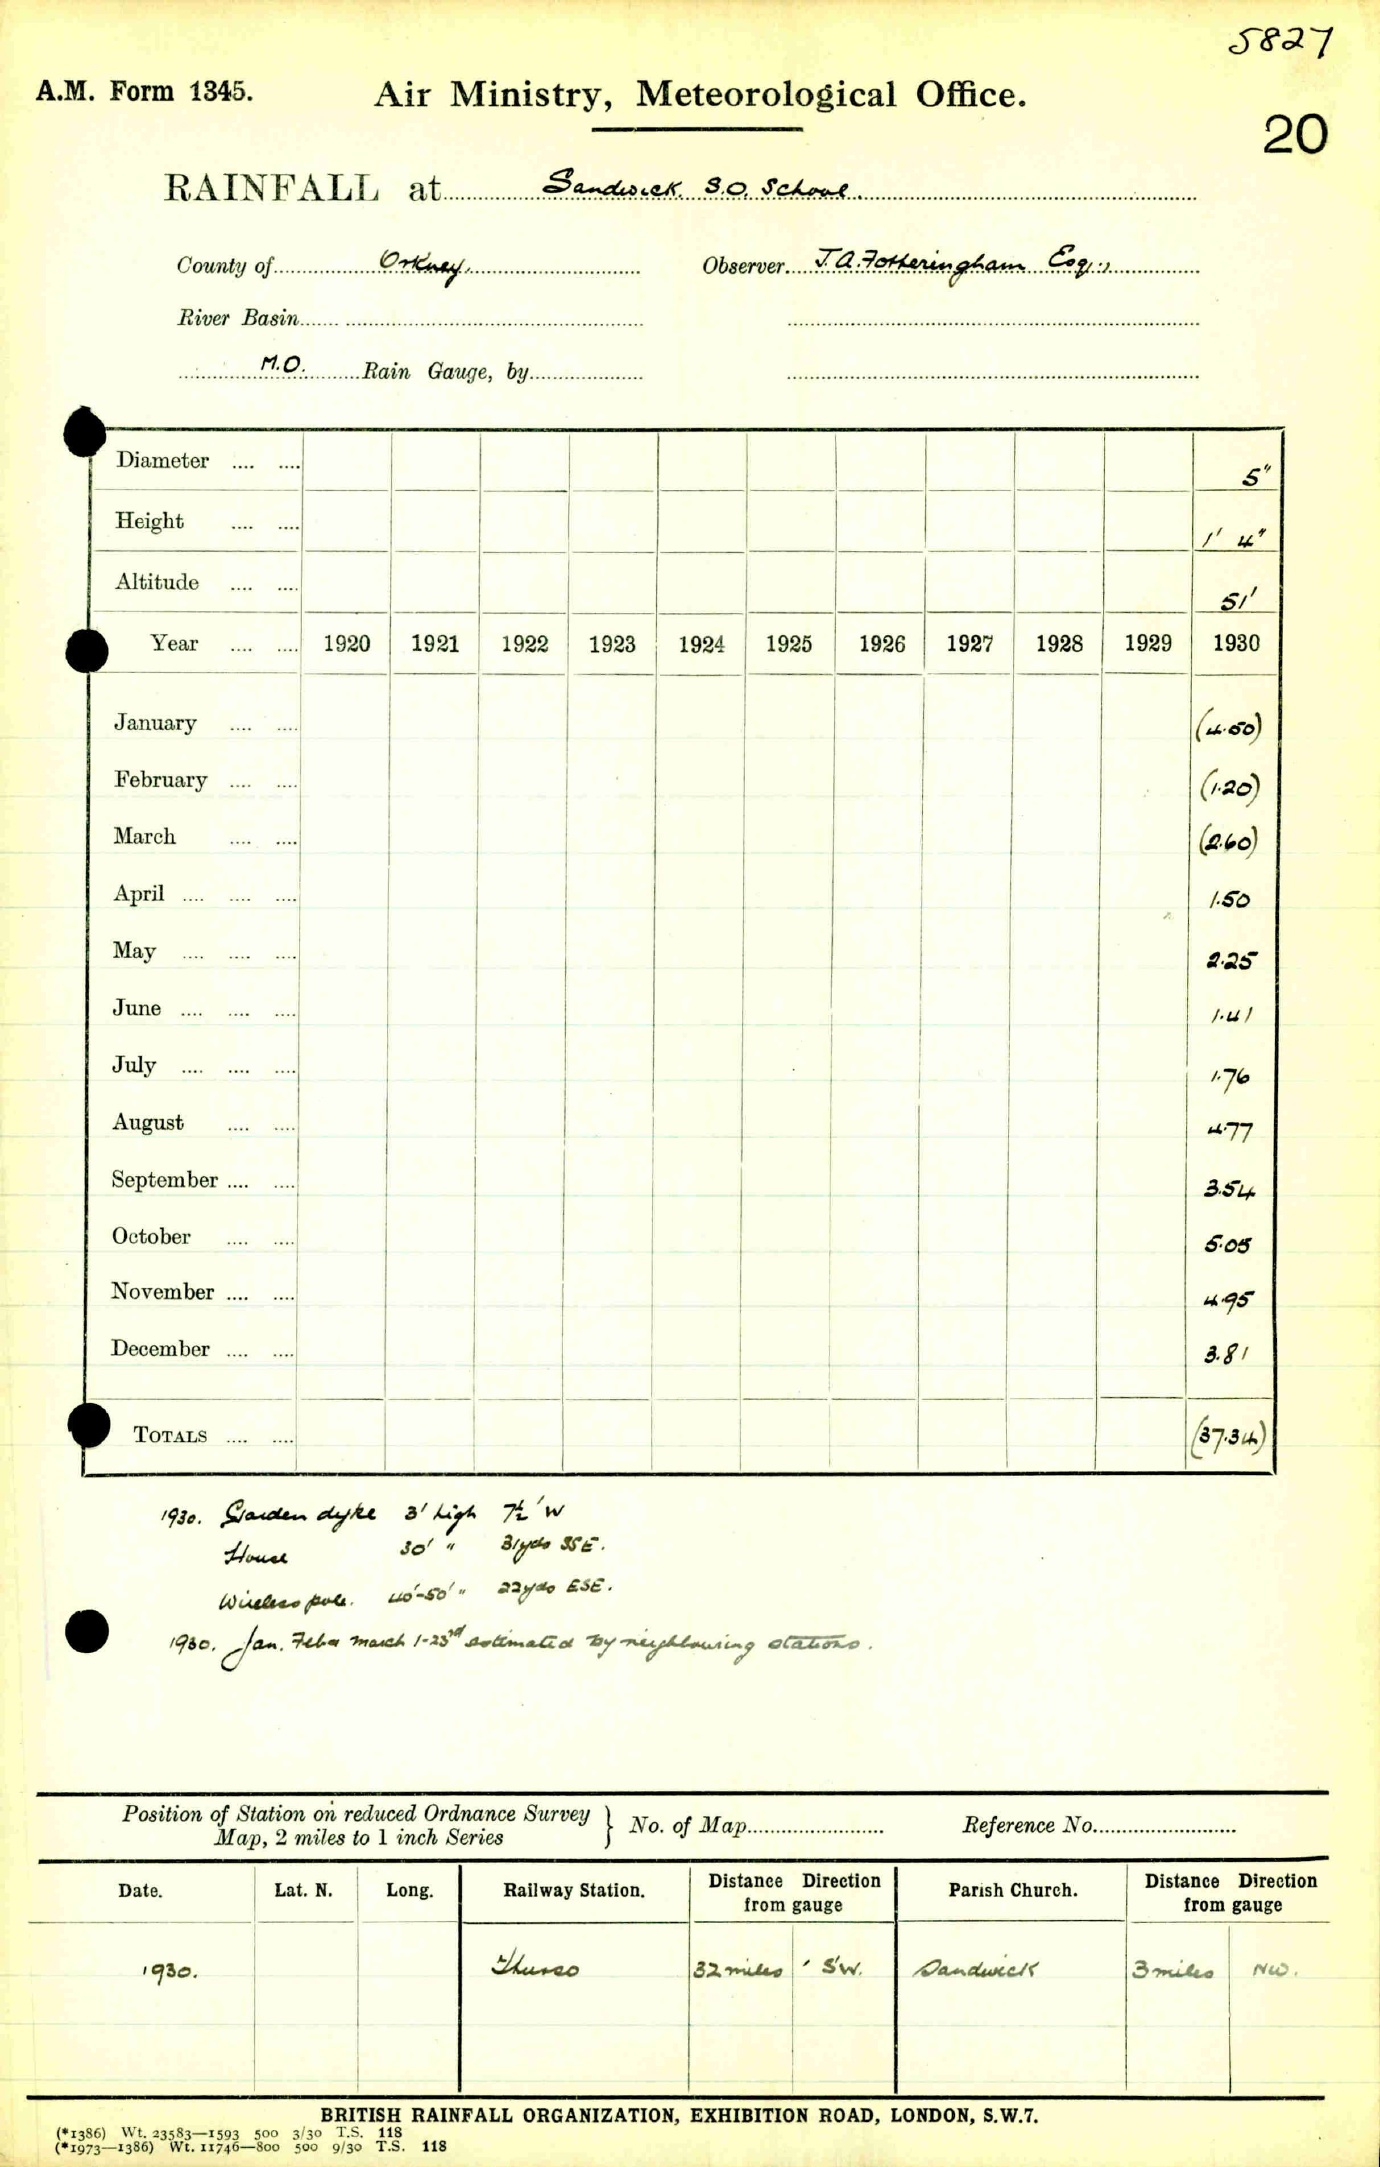 5827
A.M. Form 1345.
Air Ministry, Meteorological Office.
20
RAINFALL at Sandwick S.O. School.
County of Orkney. Observer J.A. Fotheringham Esq.,
River Basin
M.O. Rain Gauge, by
Diameter .... .... 5"
Height .... .... 1' 4"
Altitude .... .... 51'
Year .... .... 1920 1921 1922 1923 1924 1925 1926 1927 1928 1929 1930
January .... .... (4.50)
February .... .... (1.20)
March .... .... (2.60)
April .... .... .... 1.50
May .... .... .... 2.25
June .... .... .... 1.41
July .... .... .... 1.76
August .... .... 4.77
September .... .... 3.54
October .... .... 5.05
November .... .... 4.95
December .... .... 3.81
TOTALS .... .... (37.34)
1930. Garden dyke 3' high 7½' W
House 30' " 31yds SSE.
Wireless pole. 40'-50' " 22yds ESE.
1930. Jan. Feb & march 1-23rd estimated by neighbouring stations.
Position of Station on reduced Ordnance Survey
Map, 2 miles to 1 inch Series } No. of Map Reference No.
Date. Lat. N. Long. Railway Station. Distance from gauge Direction Parish Church. Distance from gauge Direction
1930. Thurso 32 miles SW. Sandwick 3 miles NW.
BRITISH RAINFALL ORGANIZATION, EXHIBITION ROAD, LONDON, S.W.7.
(*1386) Wt. 23583—1593 500 3/30 T.S. 118
(*1973—1386) Wt. 11746—800 500 9/30 T.S. 118